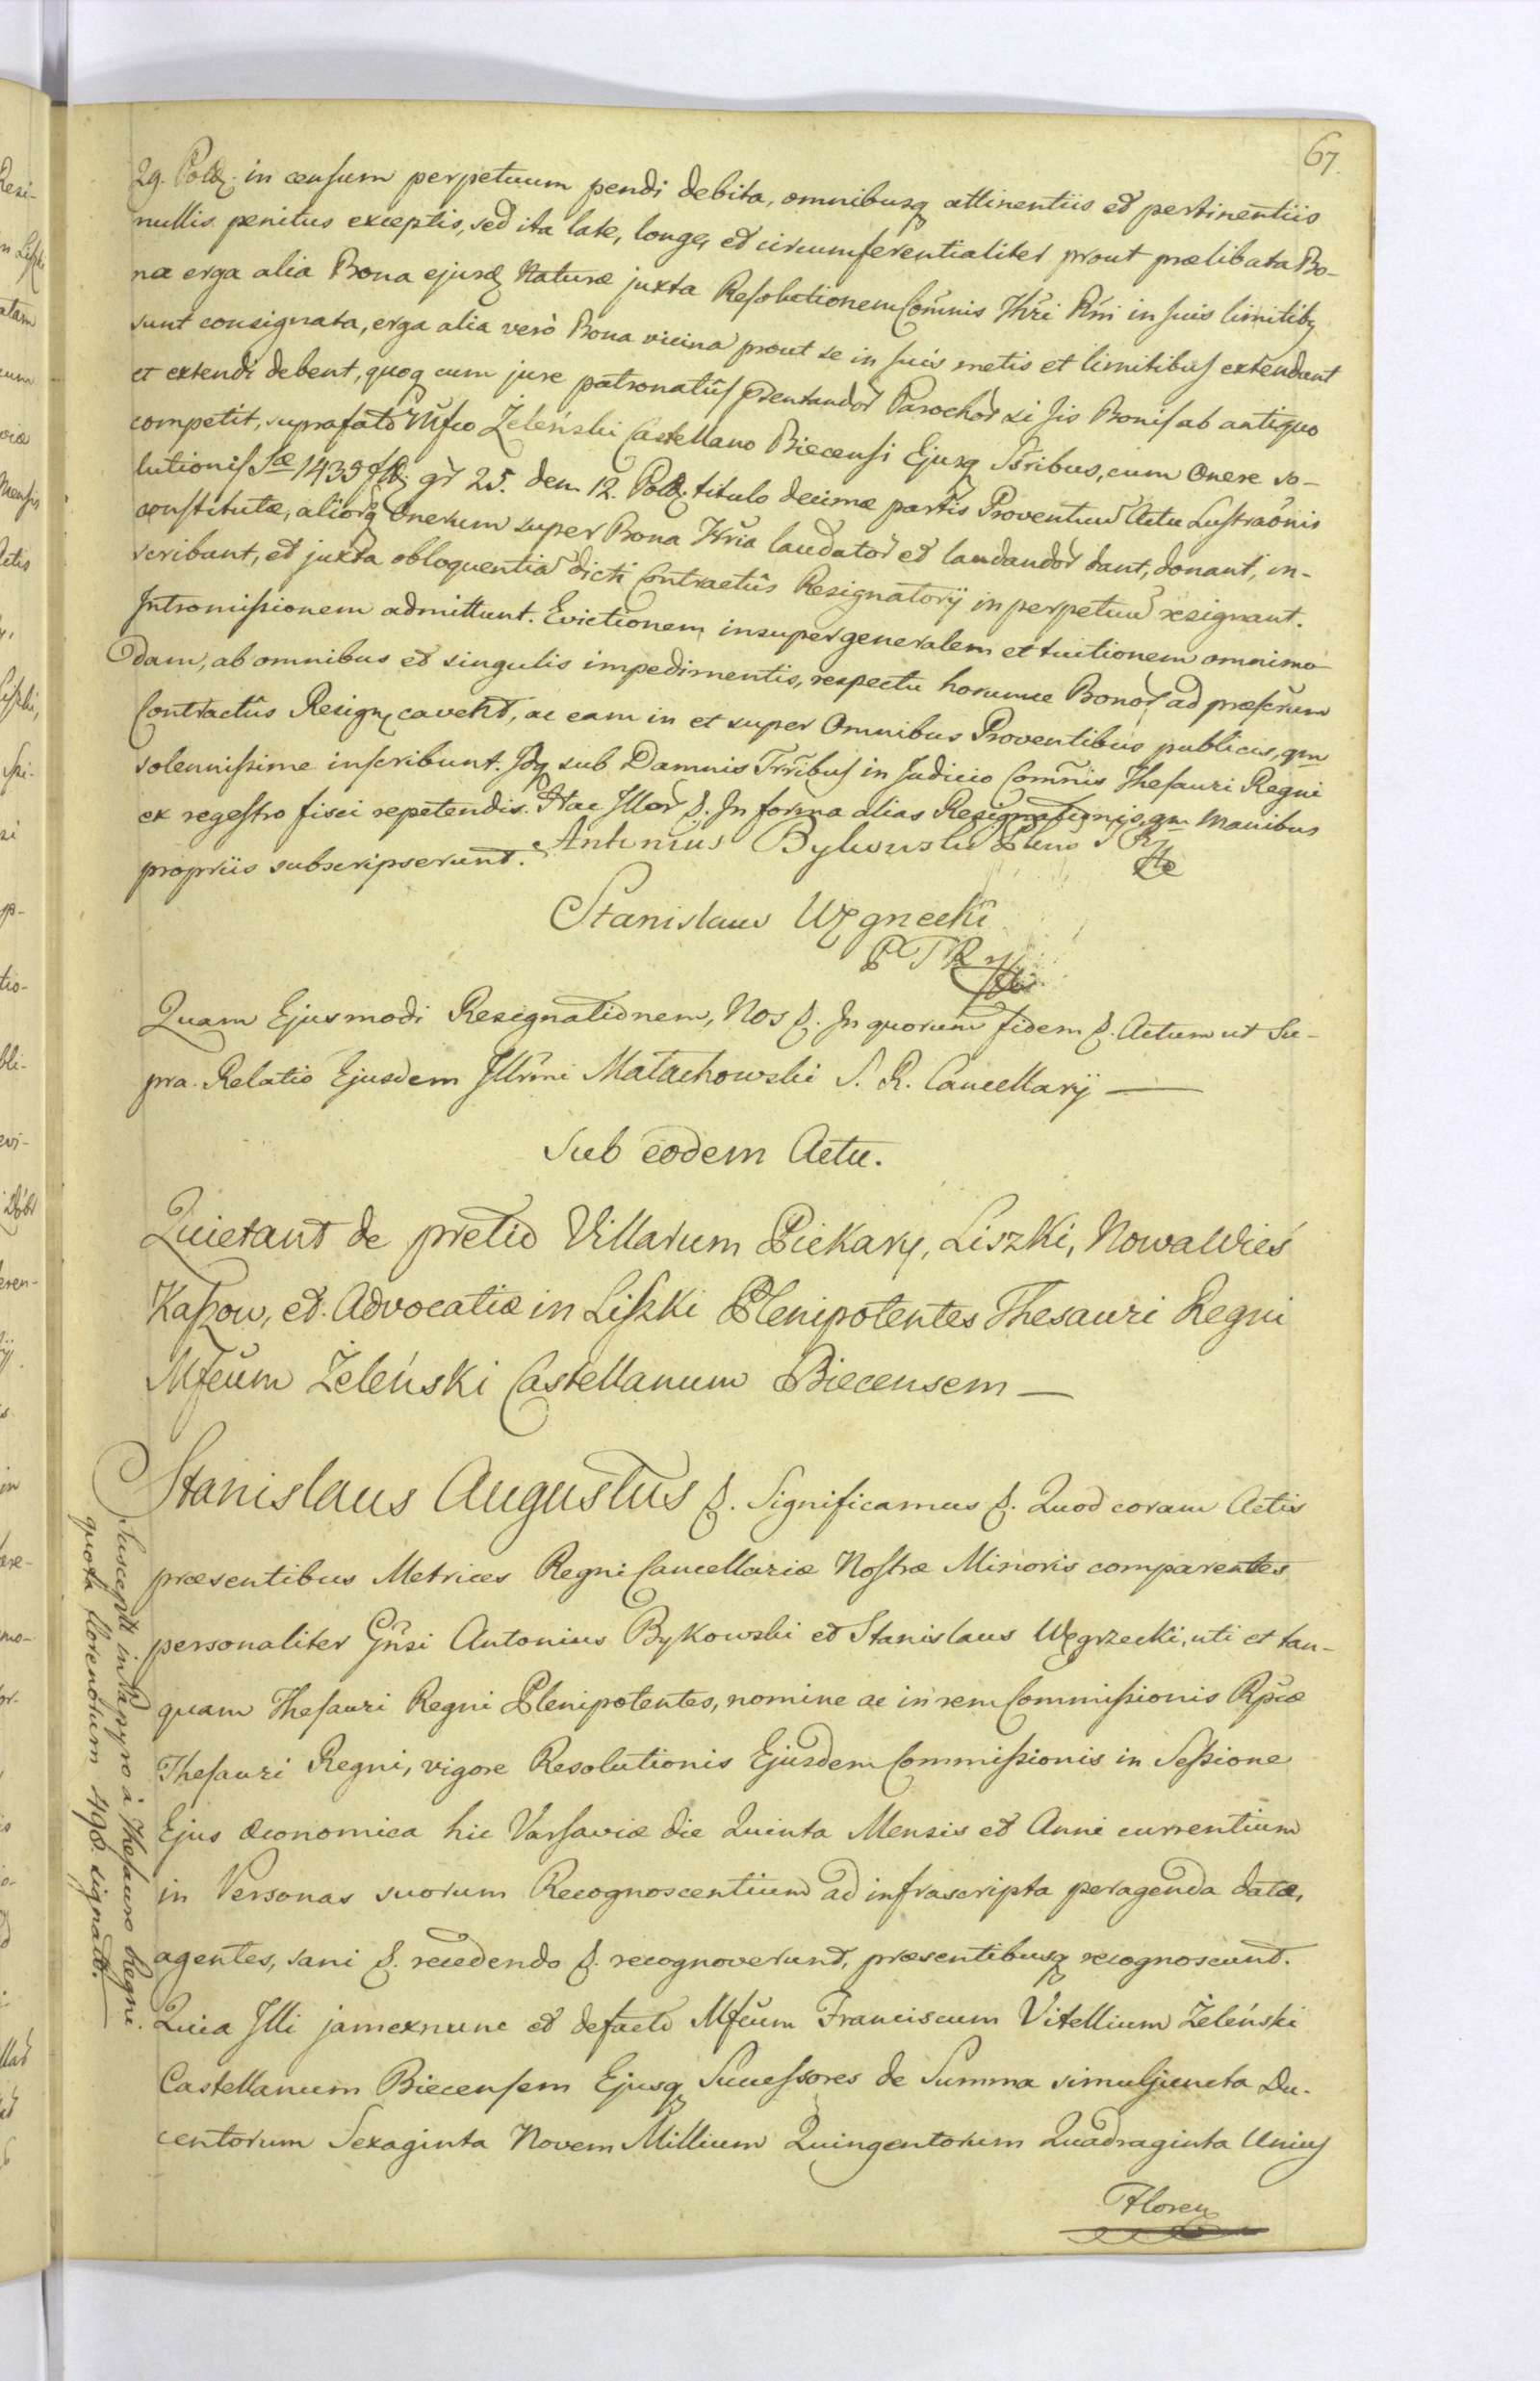 67.
29. Polł. in censum perpetuum pendi debita, omnibusq attinentiis et pertinentiis
nullis penitus exceptis, sed ita late, longe, et circumferentialiter prout prælibata Bo-
na erga alia Bona ejusd. Naturæ juxta Resolutionem Com̃nis Thr̃i Rñi in suis limitibq
sunt consignata, erga alia verò Bona vicina prout se in suis metis et limitibus extendunt
et extendi debent, quoq cum jure patronatûs Parochor si Jis Bonis ab antiquo
competit, suprafato Mfco Żeleński Castellano Biecensi Ejusq Sŝribus, cum Onere so-
lutionis Sæ 1435 fl. gr 25. den 12. Polł. titulo decimæ partis Proventuũ Actu Lustraõnis
constitutæ, aliorq Onerum super Bona Hŕia laudator et laudandor dant, donant, in-
scribunt, et juxta obloquentiã dicti Contractûs Resignatorij in perpetuũ resignant.
Intromissionem admittunt. Evictionem insuper generalem et tuitionem omnimo-
dam, ab omnibus et singulis impedimentis, respectu horumce Bonor ad præscrum
Contractûs Resign, cavent, ac eam in et super Omnibus Proventibus publicis, qm
solennissime inscribunt. Idq sub Damnis Trribus in Judicio Com̃nis Thesauri Regni
ex regestro fisci repetendis. Hac Illor &. In forma alias Resignationis, qm Manibus
propriis subscripserunt. Antonius Bykowski Pleno T R
Stanislaus Węgrzecki
P T R
Quam Ejusmodi Resignationem, Nos &. In quorum fidem &. Actum ut Su-
pra. Relatio Ejusdem Illr̃mi Małachowski S. R. Cancellarij —
Sub eodem Actu.
Quietant de pretio Villarum Piekary, Liszki, Nowa Wieś
Kaszow, et Advocatiæ in Liszki Plenipotentes Thesauri Regni
Mfcum Żeleński Castellanum Biecensem —
Stanislaus Augustus &. Significamus &. Quod coram Actis
præsentibus Metrices Regni Cancellariæ Nostræ Minoris comparentes
personaliter Gñsi Antonius Bykowski et Stanislaus Węgrzecki, uti et tan-
quam Thesauri Regni Plenipotentes, nomine ac in rem Commissionis Rpcæ
Thesauri Regni, vigore Resolutionis Ejusdem Commissionis in Sessione
Ejus Œconomica hic Varsaviæ die Quinta Mensis et Anni currentium
in Personas suorum Recognoscentium ad infrascripta peragenda datæ,
agentes, sani &. recedendo &. recognoverunt, præsentibusq recognoscunt.
Quia Illi jam exnunc et defacto Mfcum Franciscum Vitellium Żeleński
Castellanum Biecensem Ejusq Successores de Summa simuljuncta Du-
centorum Sexaginta Novem Millium Quingentorum Quadraginta Unius
Floren
Susceptt in Papyro à Thesauro Regni
quota florenorum 498. signatt.